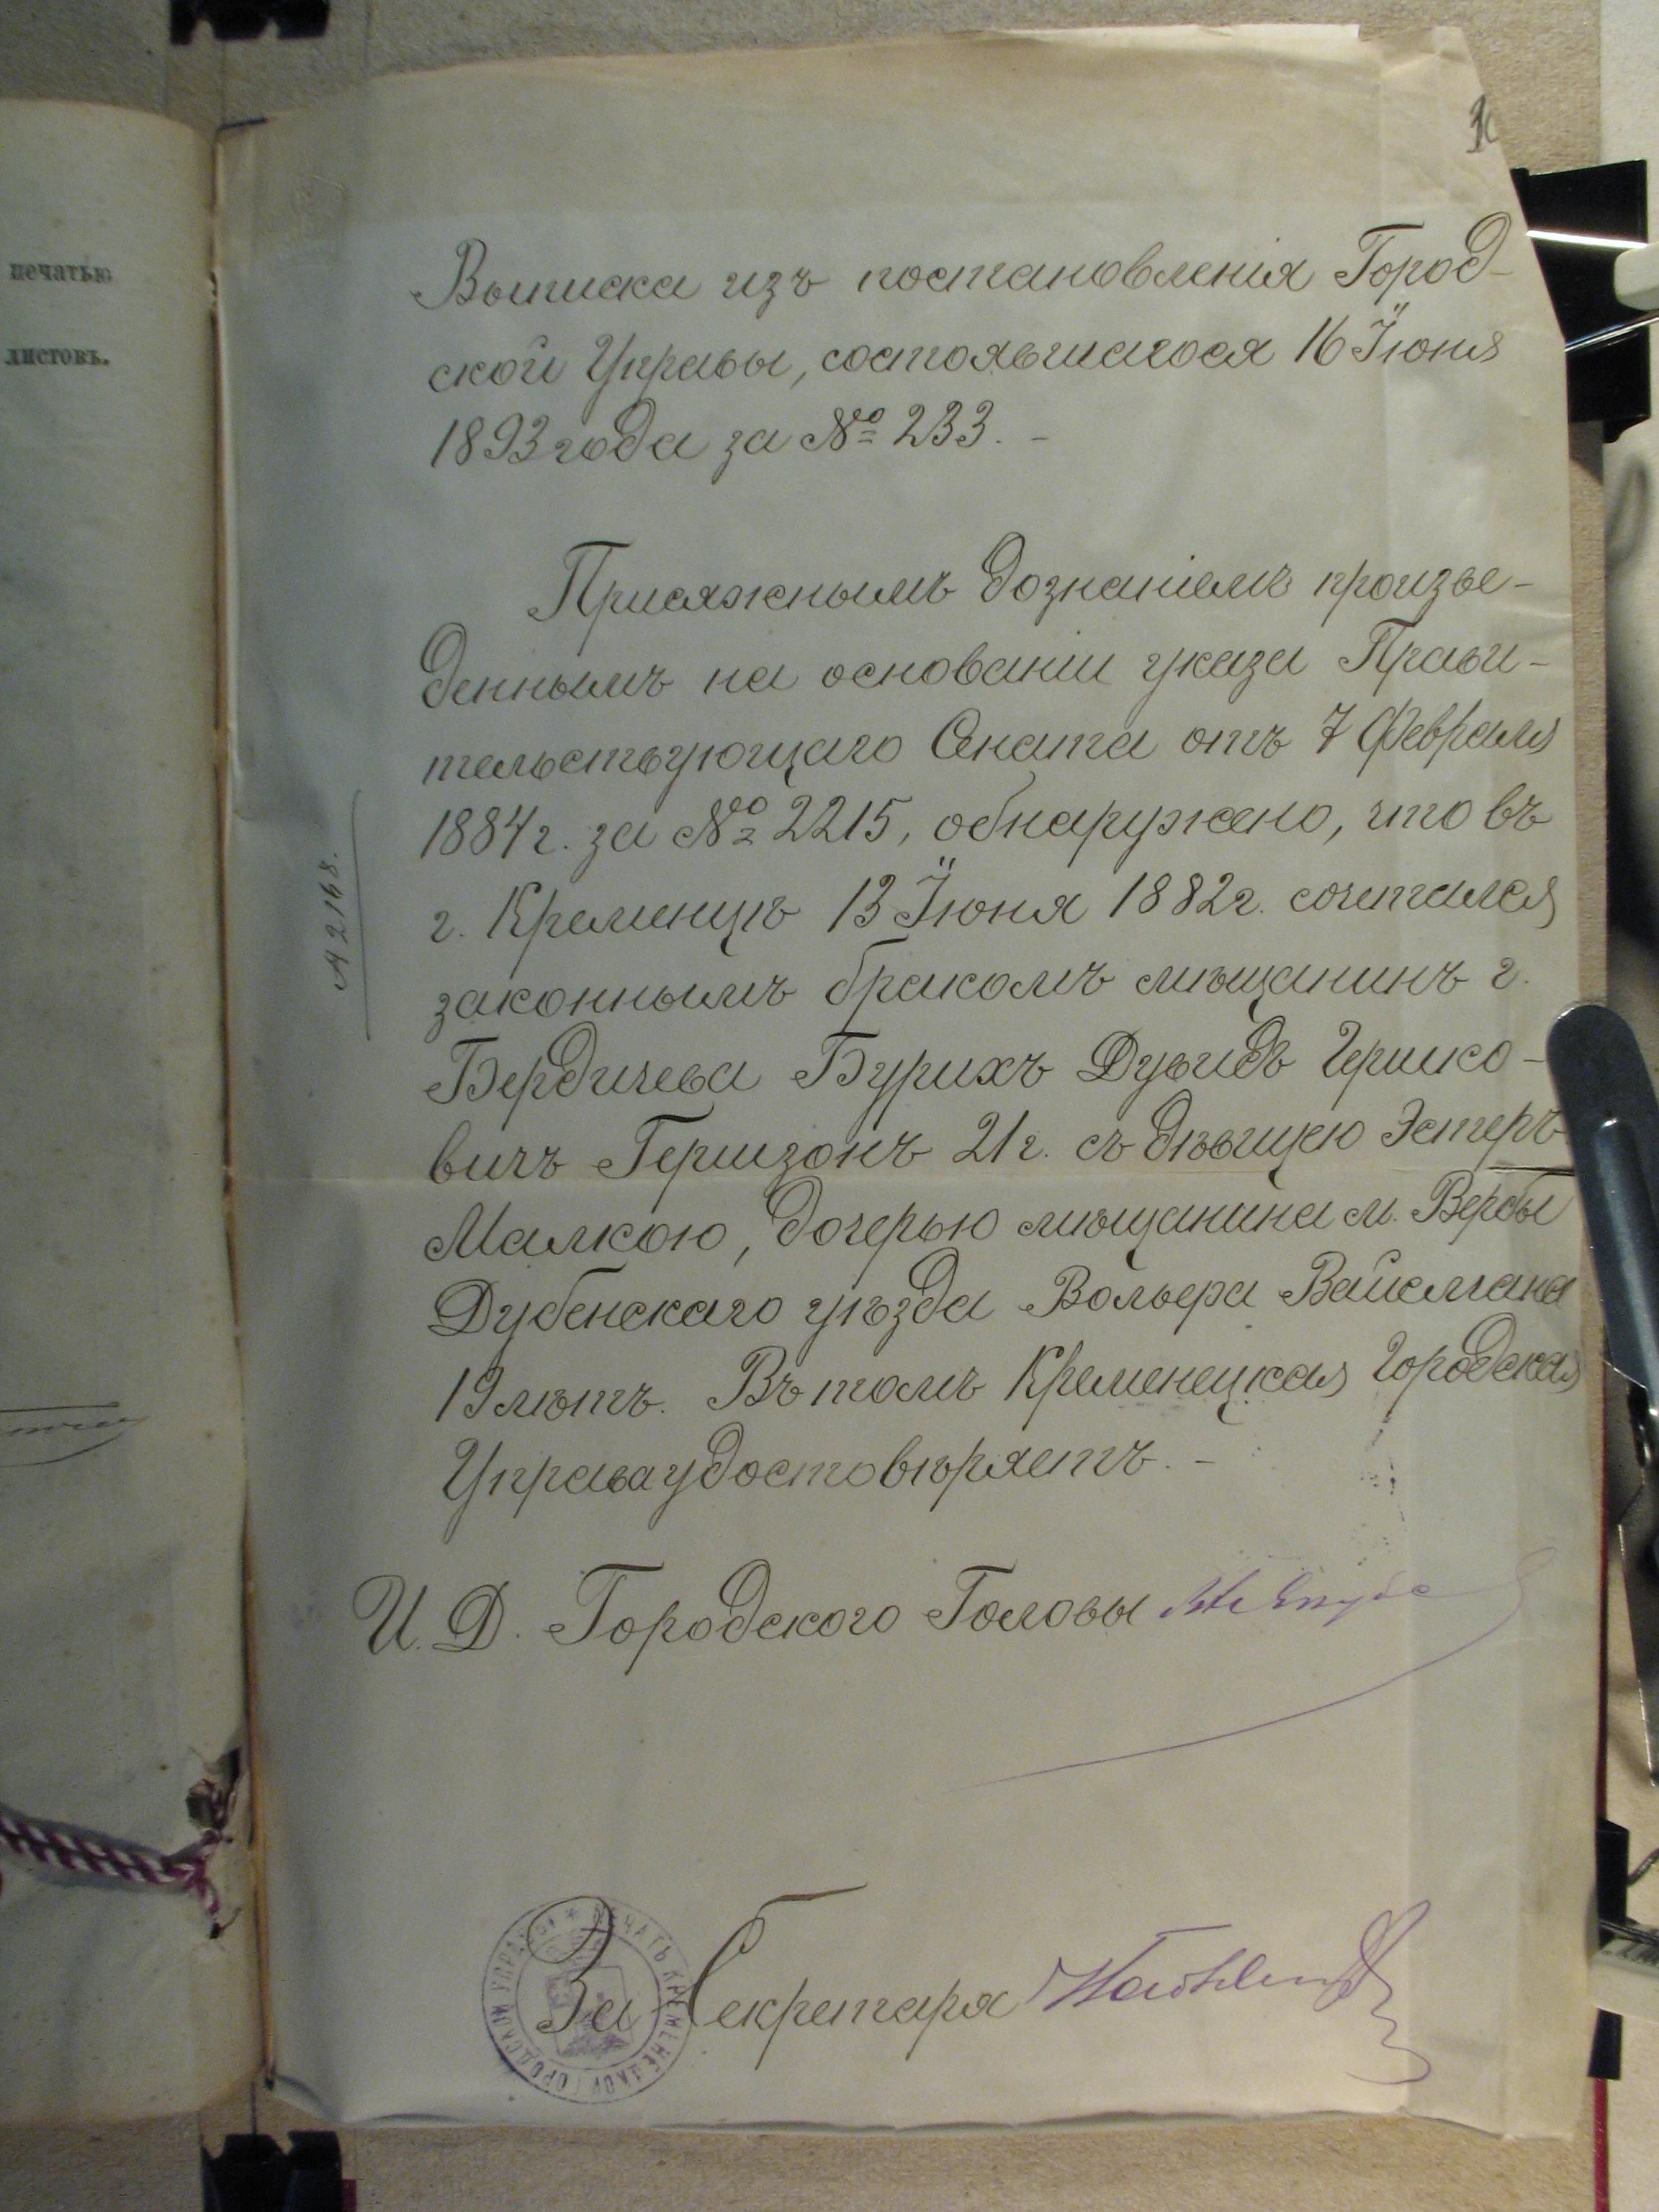 печатью
листовъ.
Выписка изъ постановленія Город-
ской Управы, состоявшагося 16 Іюня
1893 года за № 233. -
Присяжнымъ дознаніемъ произве-
деннымъ на основаніи указа Прави-
тельствующаго Сената отъ 7 Февраля
1884 г. за № 2215, обнаружено, что въ
г. Кременцѣ 13 Іюня 1882 г. сочетался
законнымъ бракомъ мѣщанинъ г.
Бердичева Бурихъ Дувидъ Гершко-
вичъ Гершзонъ 21 г. съ дѣвицею Эстеръ
Малкою, дочерью мѣщанина м. Вербы
Дубенскаго уѣзда Вольера Вайсмана
19 лѣтъ. Въ томъ Кременецкая Городская
Управа удостовѣряетъ. -
И. Д. Городского Головы
За Секретаря
ПЕЧАТЬ КРЕМЕНЕЦКОЙ ГОРОДСКОЙ УПРАВЫ
№ 2168.